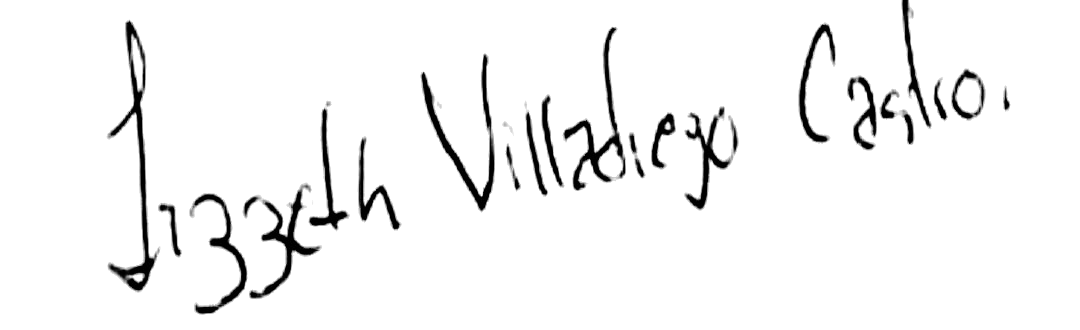 Lizzeth Villadiego Castro.